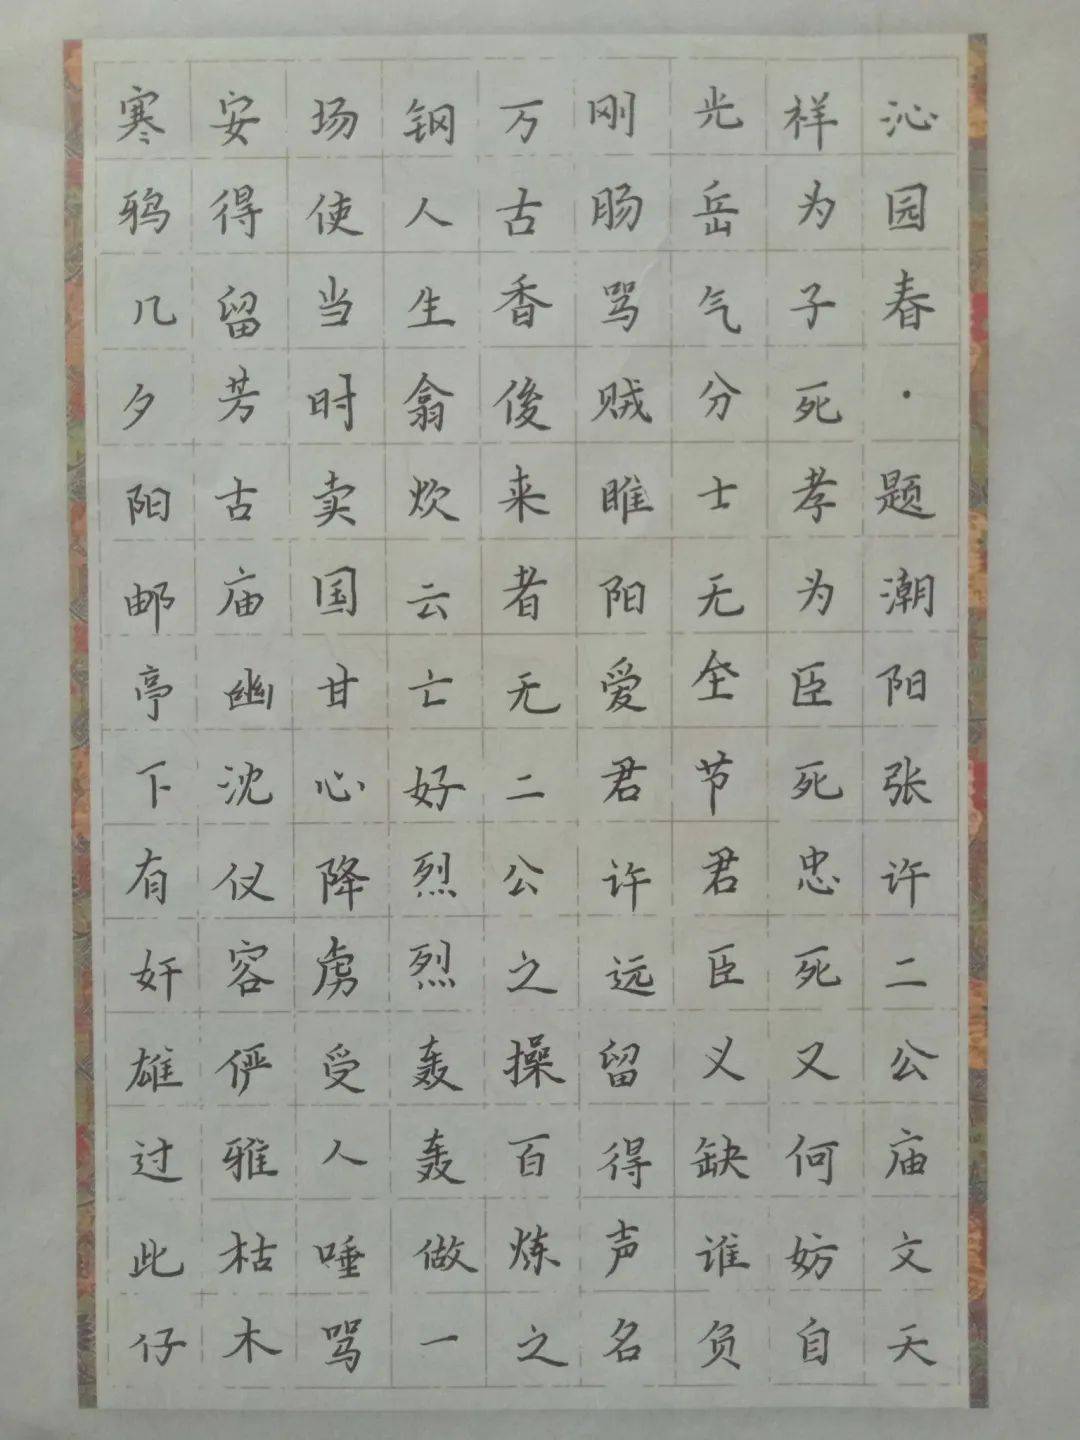 沁园春·题潮阳张许二公庙文天
样为子死孝为臣死忠死又何妨自
光岳气分士无全节君臣义缺谁负
刚肠骂贼睢阳爱君许远留得声名
万古香後来者无二公之操百炼之
钢人生翕炊云亡好烈烈轰轰做一
场使当时卖国甘心降虏受人唾骂
安得留芳古庙幽沈仪容俨雅枯木
寒鸦几夕阳邮亭下有奸雄过此仔